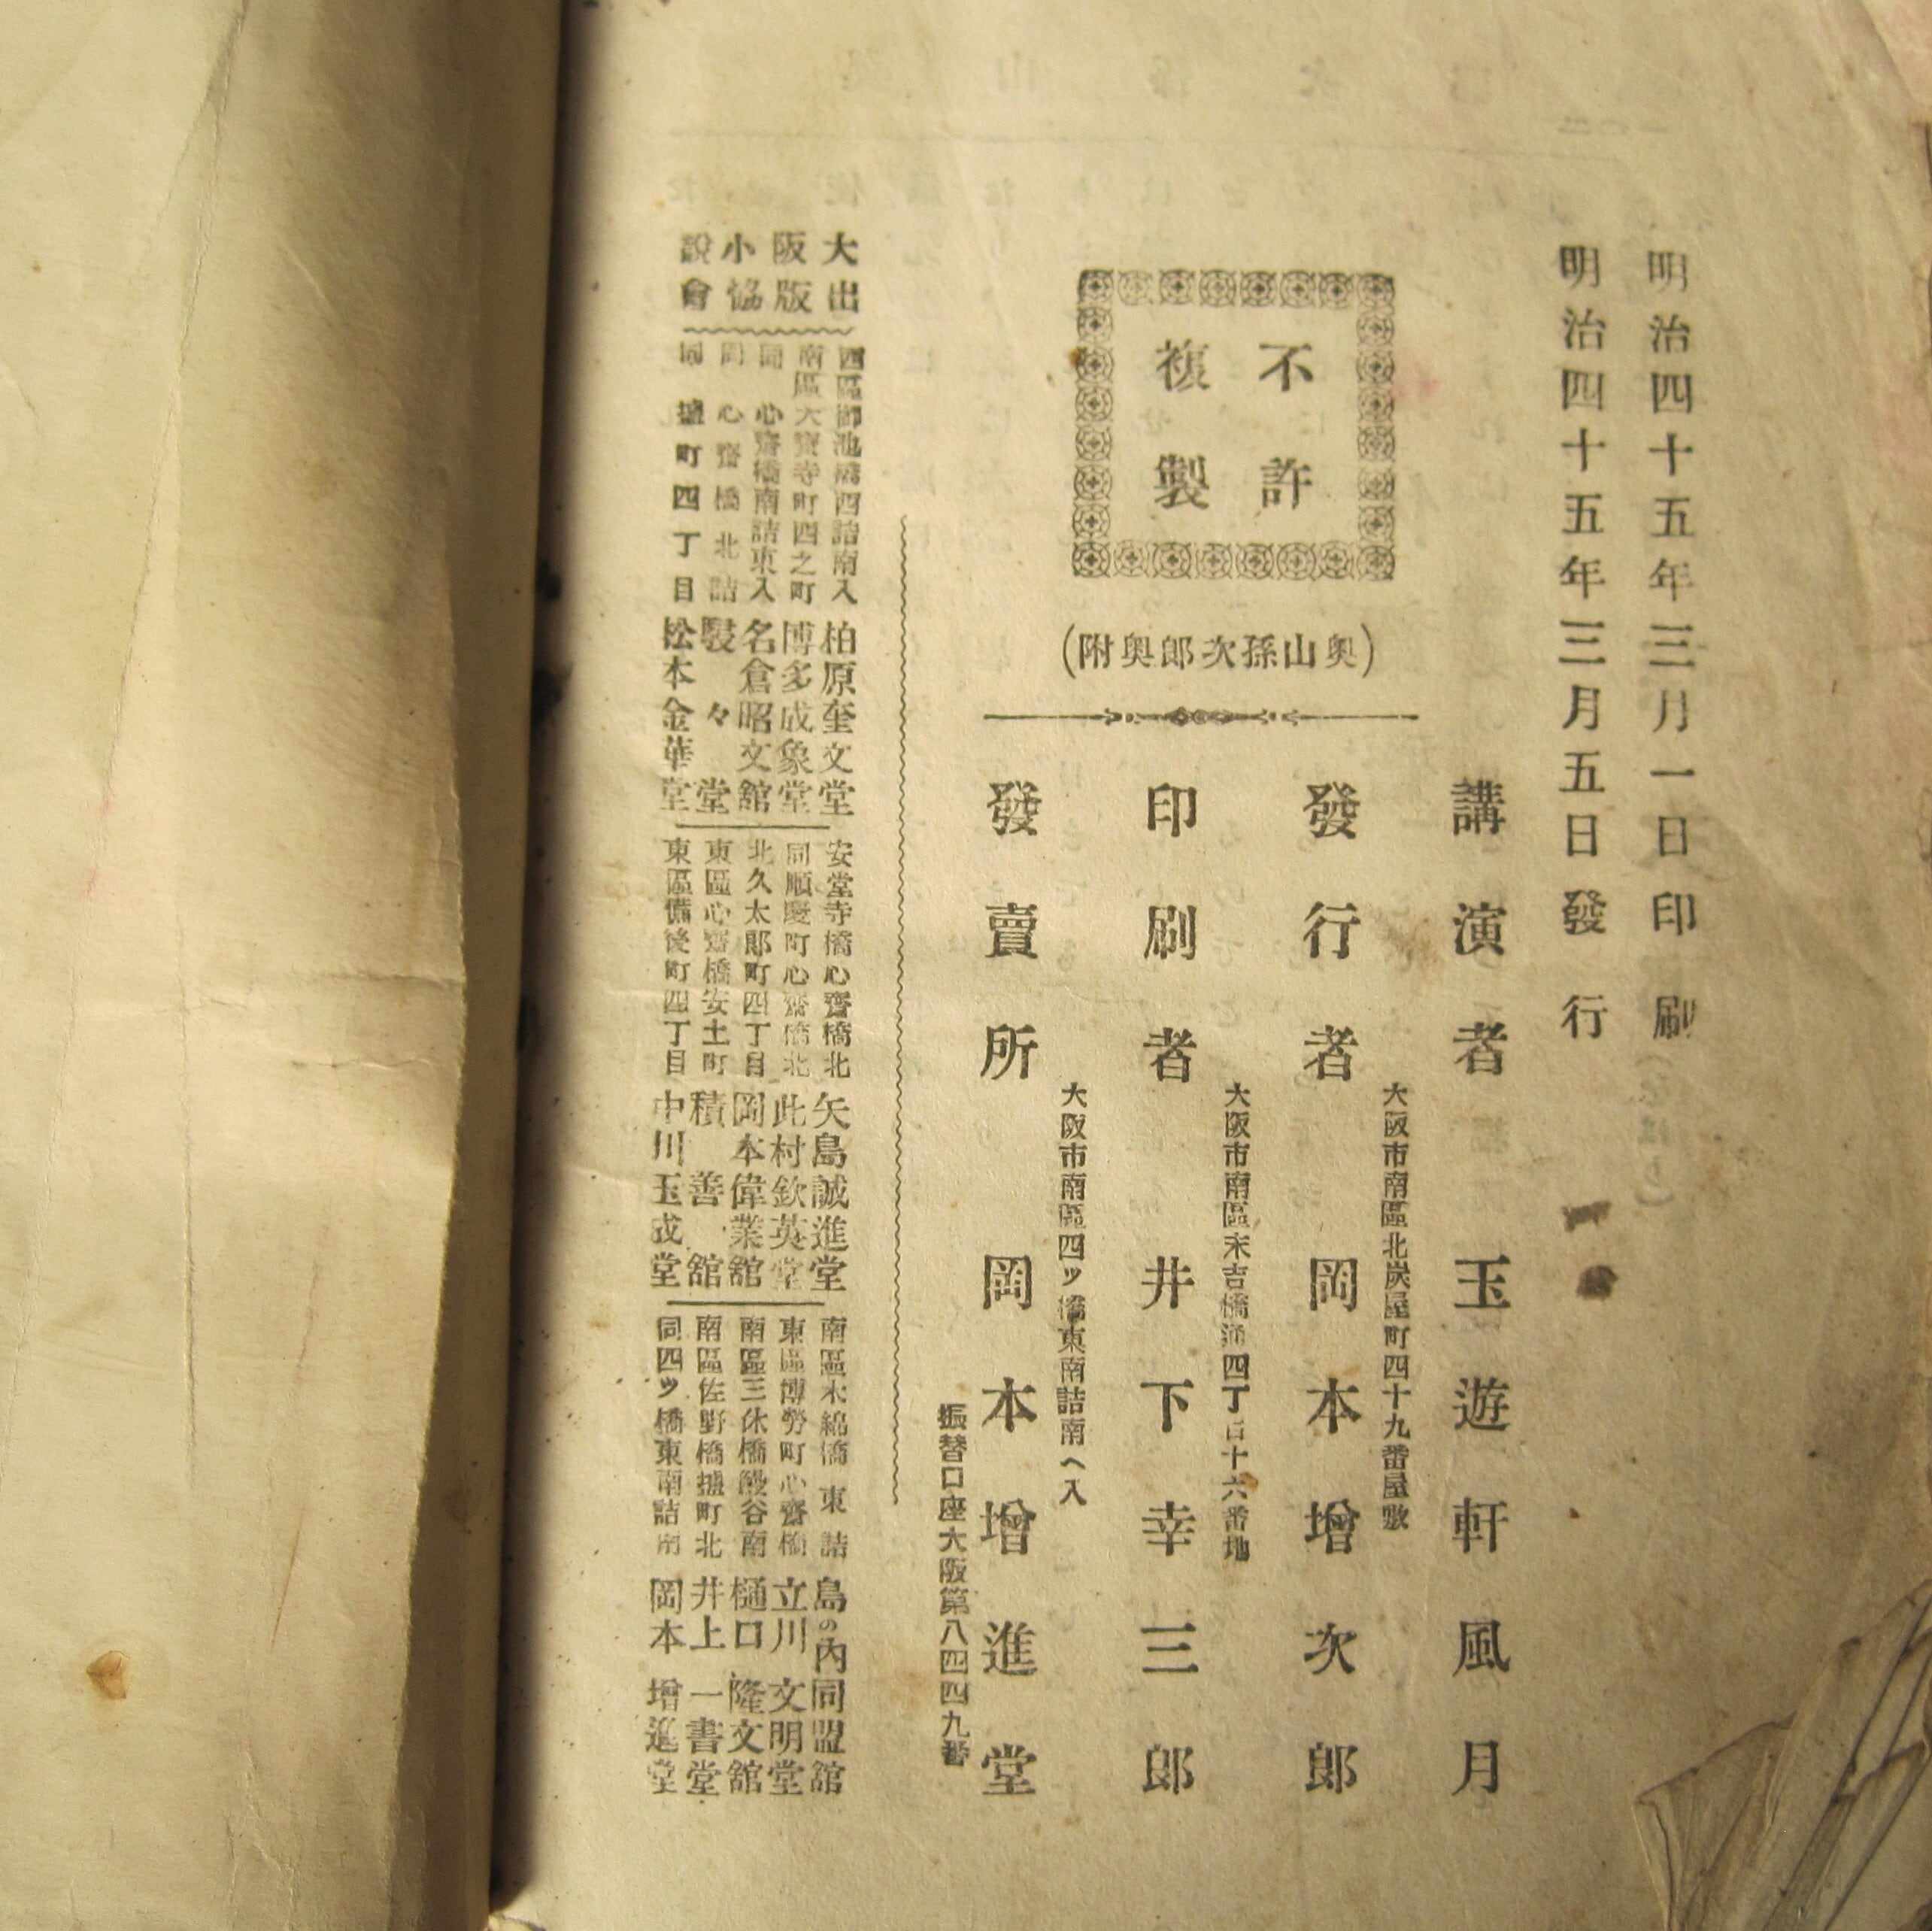 明治四十五年三月一日印刷
明治四十五年三月五日發行
不許
複製
(奥山孫次郎奥附)
講演者 玉遊軒風月
大阪市南區北炭屋町四十九番屋敷
發行者 岡本增次郎
大阪市南區末吉橋通四丁目十六番地
印刷者 井下幸三郎
大阪市南區四ツ橋東南詰南へ入
發賣所 岡本增進堂
振替口座大阪第八四四九番
大阪小說
出版協會
西區御池橋西詰南入 柏原奎文堂
南區大寶寺町西之町 博多成象堂
同 心齋橋南詰東入 名倉昭文舘
同 心齋橋北詰 駸々堂
同 鹽町四丁目 松本金華堂
安堂寺橋心齋橋北 矢島誠進堂
同順慶町心齋橋北 此村欽英堂
北久太郎町四丁目 岡本偉業舘
東區心齋橋安土町 積善舘
東區備後町四丁目 中川玉成堂
南區木綿橋東詰 島の内同盟舘
東區博勞町心齋橋 立川文明堂
南區三休橋鰻谷南 樋口隆文舘
南區佐野橋鹽町北 井上一書堂
同四ツ橋東南詰南 岡本增進堂